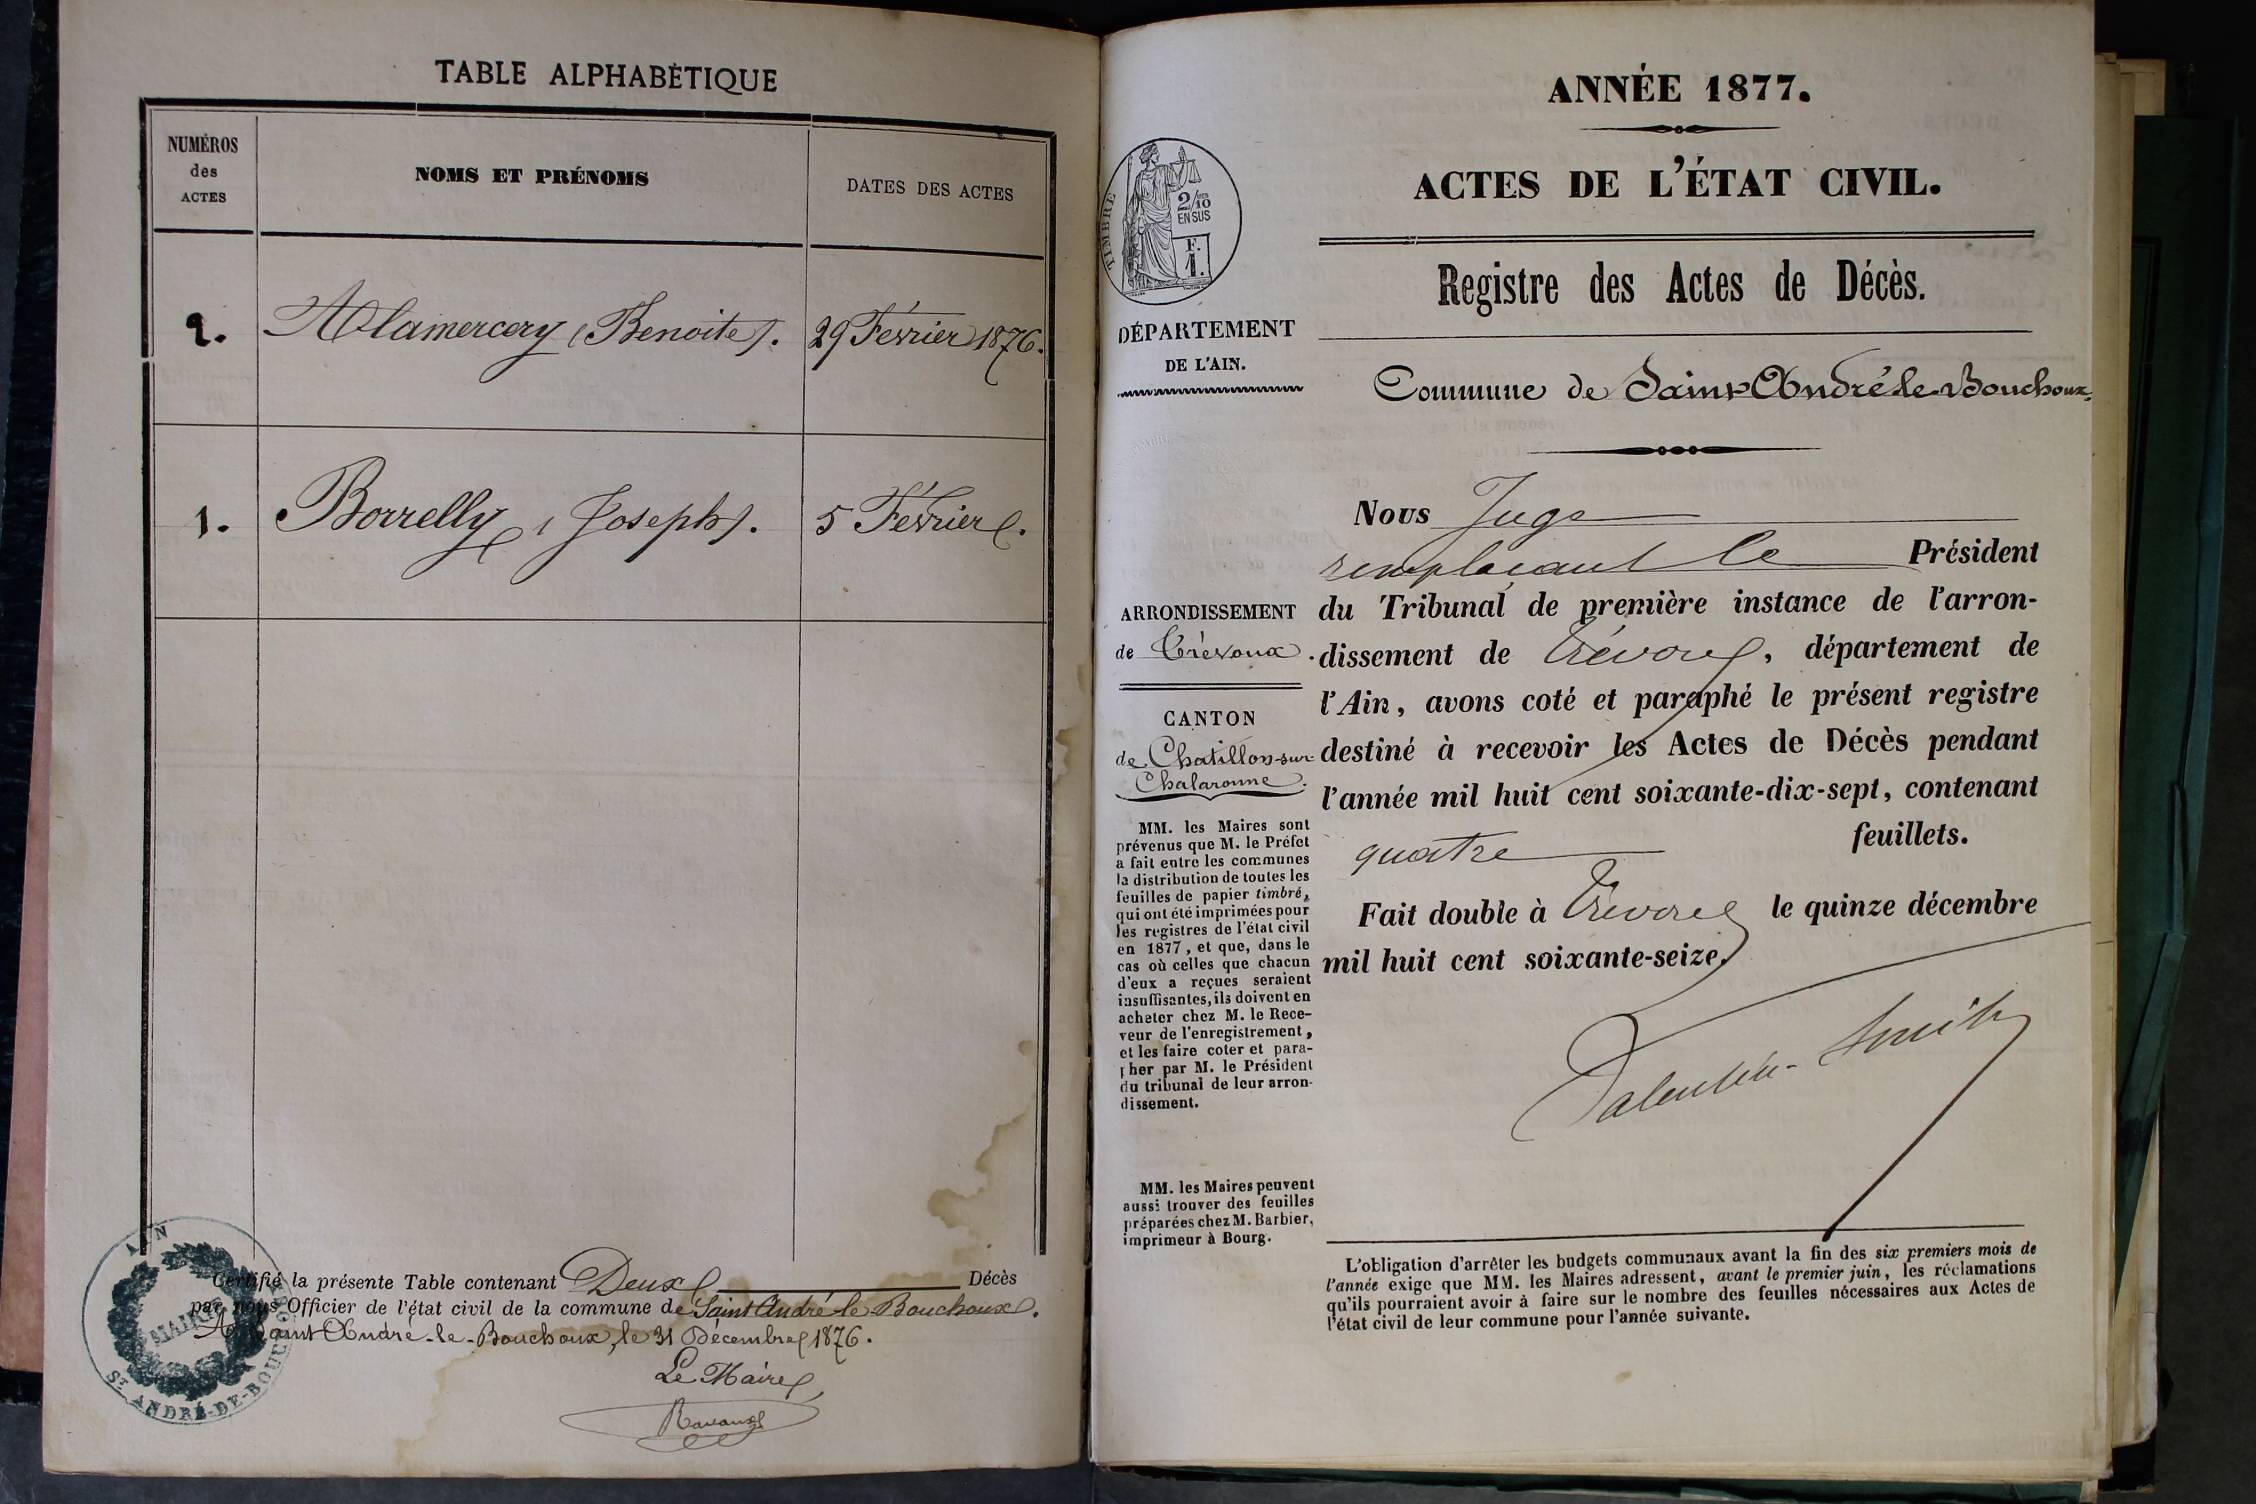 TABLE ALPHABÉTIQUE
NUMÉROS
des
ACTES
NOMS ET PRÉNOMS
DATES DES ACTES
2. Alamercery (Benoite). 29 Février 1876.
1. Borrelly (Joseph). 5 Février.
Certifié la présente Table contenant Deux Décès
par nous Officier de l'état civil de la commune de Saint André-le-Bouchoux.
A Saint-André-le-Bouchoux, le 31 Décembre 1876.
Le Maire
AIN
MAIRIE
ST ANDRÉ-DE-BOUCHOUX
ANNÉE 1877.
ACTES DE L'ÉTAT CIVIL.
TIMBRE
2/10
EN SUS
F.
1.
DÉPARTEMENT
DE L'AIN.
Registre des Actes de Décès.
Commune de Saint-André-le-Bouchoux.
ARRONDISSEMENT
de Trévoux.
CANTON
de Chatillon-sur-
Chalaronne.
MM. les Maires sont
prévenus que M. le Préfet
a fait entre les communes
la distribution de toutes les
feuilles de papier timbré,
qui ont été imprimées pour
les registres de l'état civil
en 1877, et que, dans le
cas où celles que chacun
d'eux a reçues seraient
insuffisantes, ils doivent en
acheter chez M. le Rece-
veur de l'enregistrement,
et les faire coter et para-
pher par M. le Président
du tribunal de leur arron-
dissement.
MM. les Maires peuvent
aussi trouver des feuilles
préparées chez M. Barbier,
imprimeur à Bourg.
Nous Juge
remplaçant le Président
du Tribunal de première instance de l'arron-
dissement de Trévoux, département de
l'Ain, avons coté et paraphé le présent registre
destiné à recevoir les Actes de Décès pendant
l'année mil huit cent soixante-dix-sept, contenant
quatre feuillets.
Fait double à Trévoux le quinze décembre
mil huit cent soixante-seize.
Valentin-Smith
L'obligation d'arrêter les budgets communaux avant la fin des six premiers mois de
l'année exige que MM. les Maires adressent, avant le premier juin, les réclamations
qu'ils pourraient avoir à faire sur le nombre des feuilles nécessaires aux Actes de
l'état civil de leur commune pour l'année suivante.